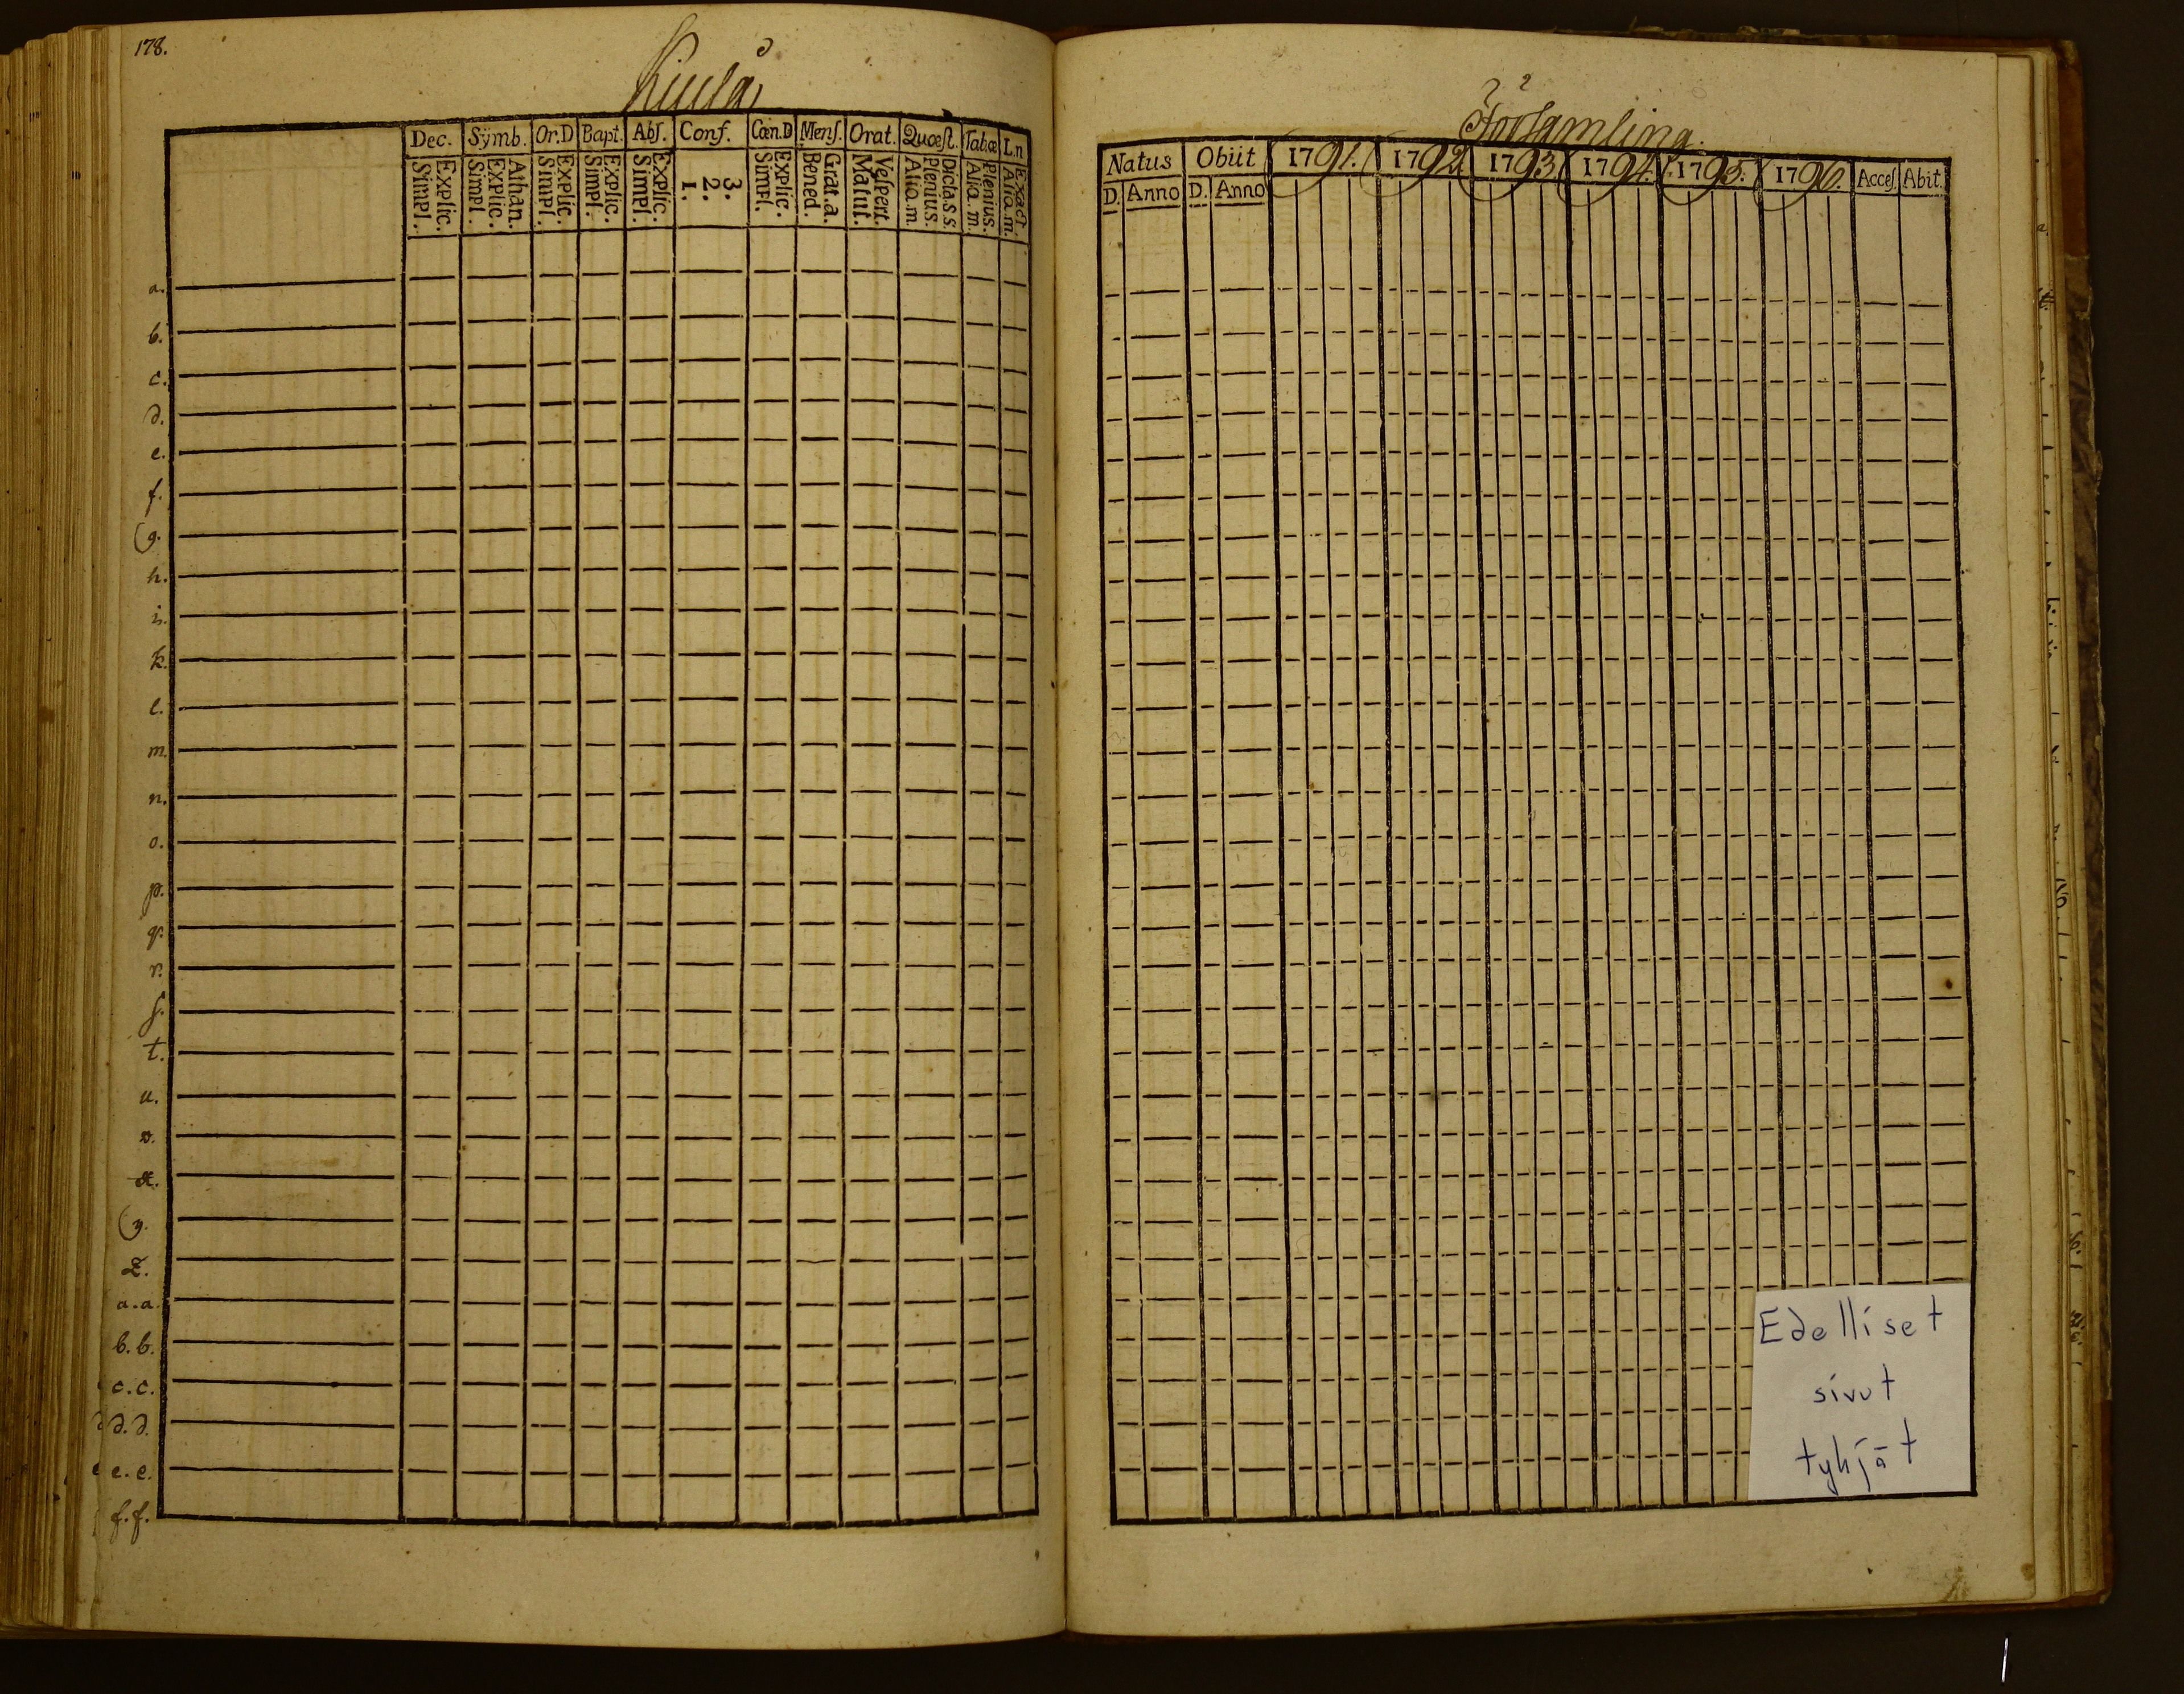 178.
Kiula
Dec. Sÿmb. Or.D Bapt. Abſ. Conf. Cœn.D Menſ. Orat. Quœſt. Tab.œ L.n
Explic. Simpl.
Athan. Explic. Simpl.
Explic. Simpl.
Explic. Simpl.
Explic. Simpl.
3. 2. 1.
Explic. Simpl.
Grat.a. Bened.
Veſpert. Matut.
Dicta.s.s. Plenius. Aliq.m
Plenius. Aliq.m
Exact. Aliq.m.
a.
b.
c.
d.
e.
f.
g.
h.
i.
k.
l.
m.
n.
o.
p.
q.
r.
ſ.
t.
u.
v.
x.
y.
z.
a.a.
b.b.
c.c.
d.d.
e.e.
f.f.
Församling.
Natus Obiit 1791. 1792. 1793. 1794. 1795. 1796. Acceſ Abit.
D. Anno D. Anno
Edelliset
sivut
tyhjät